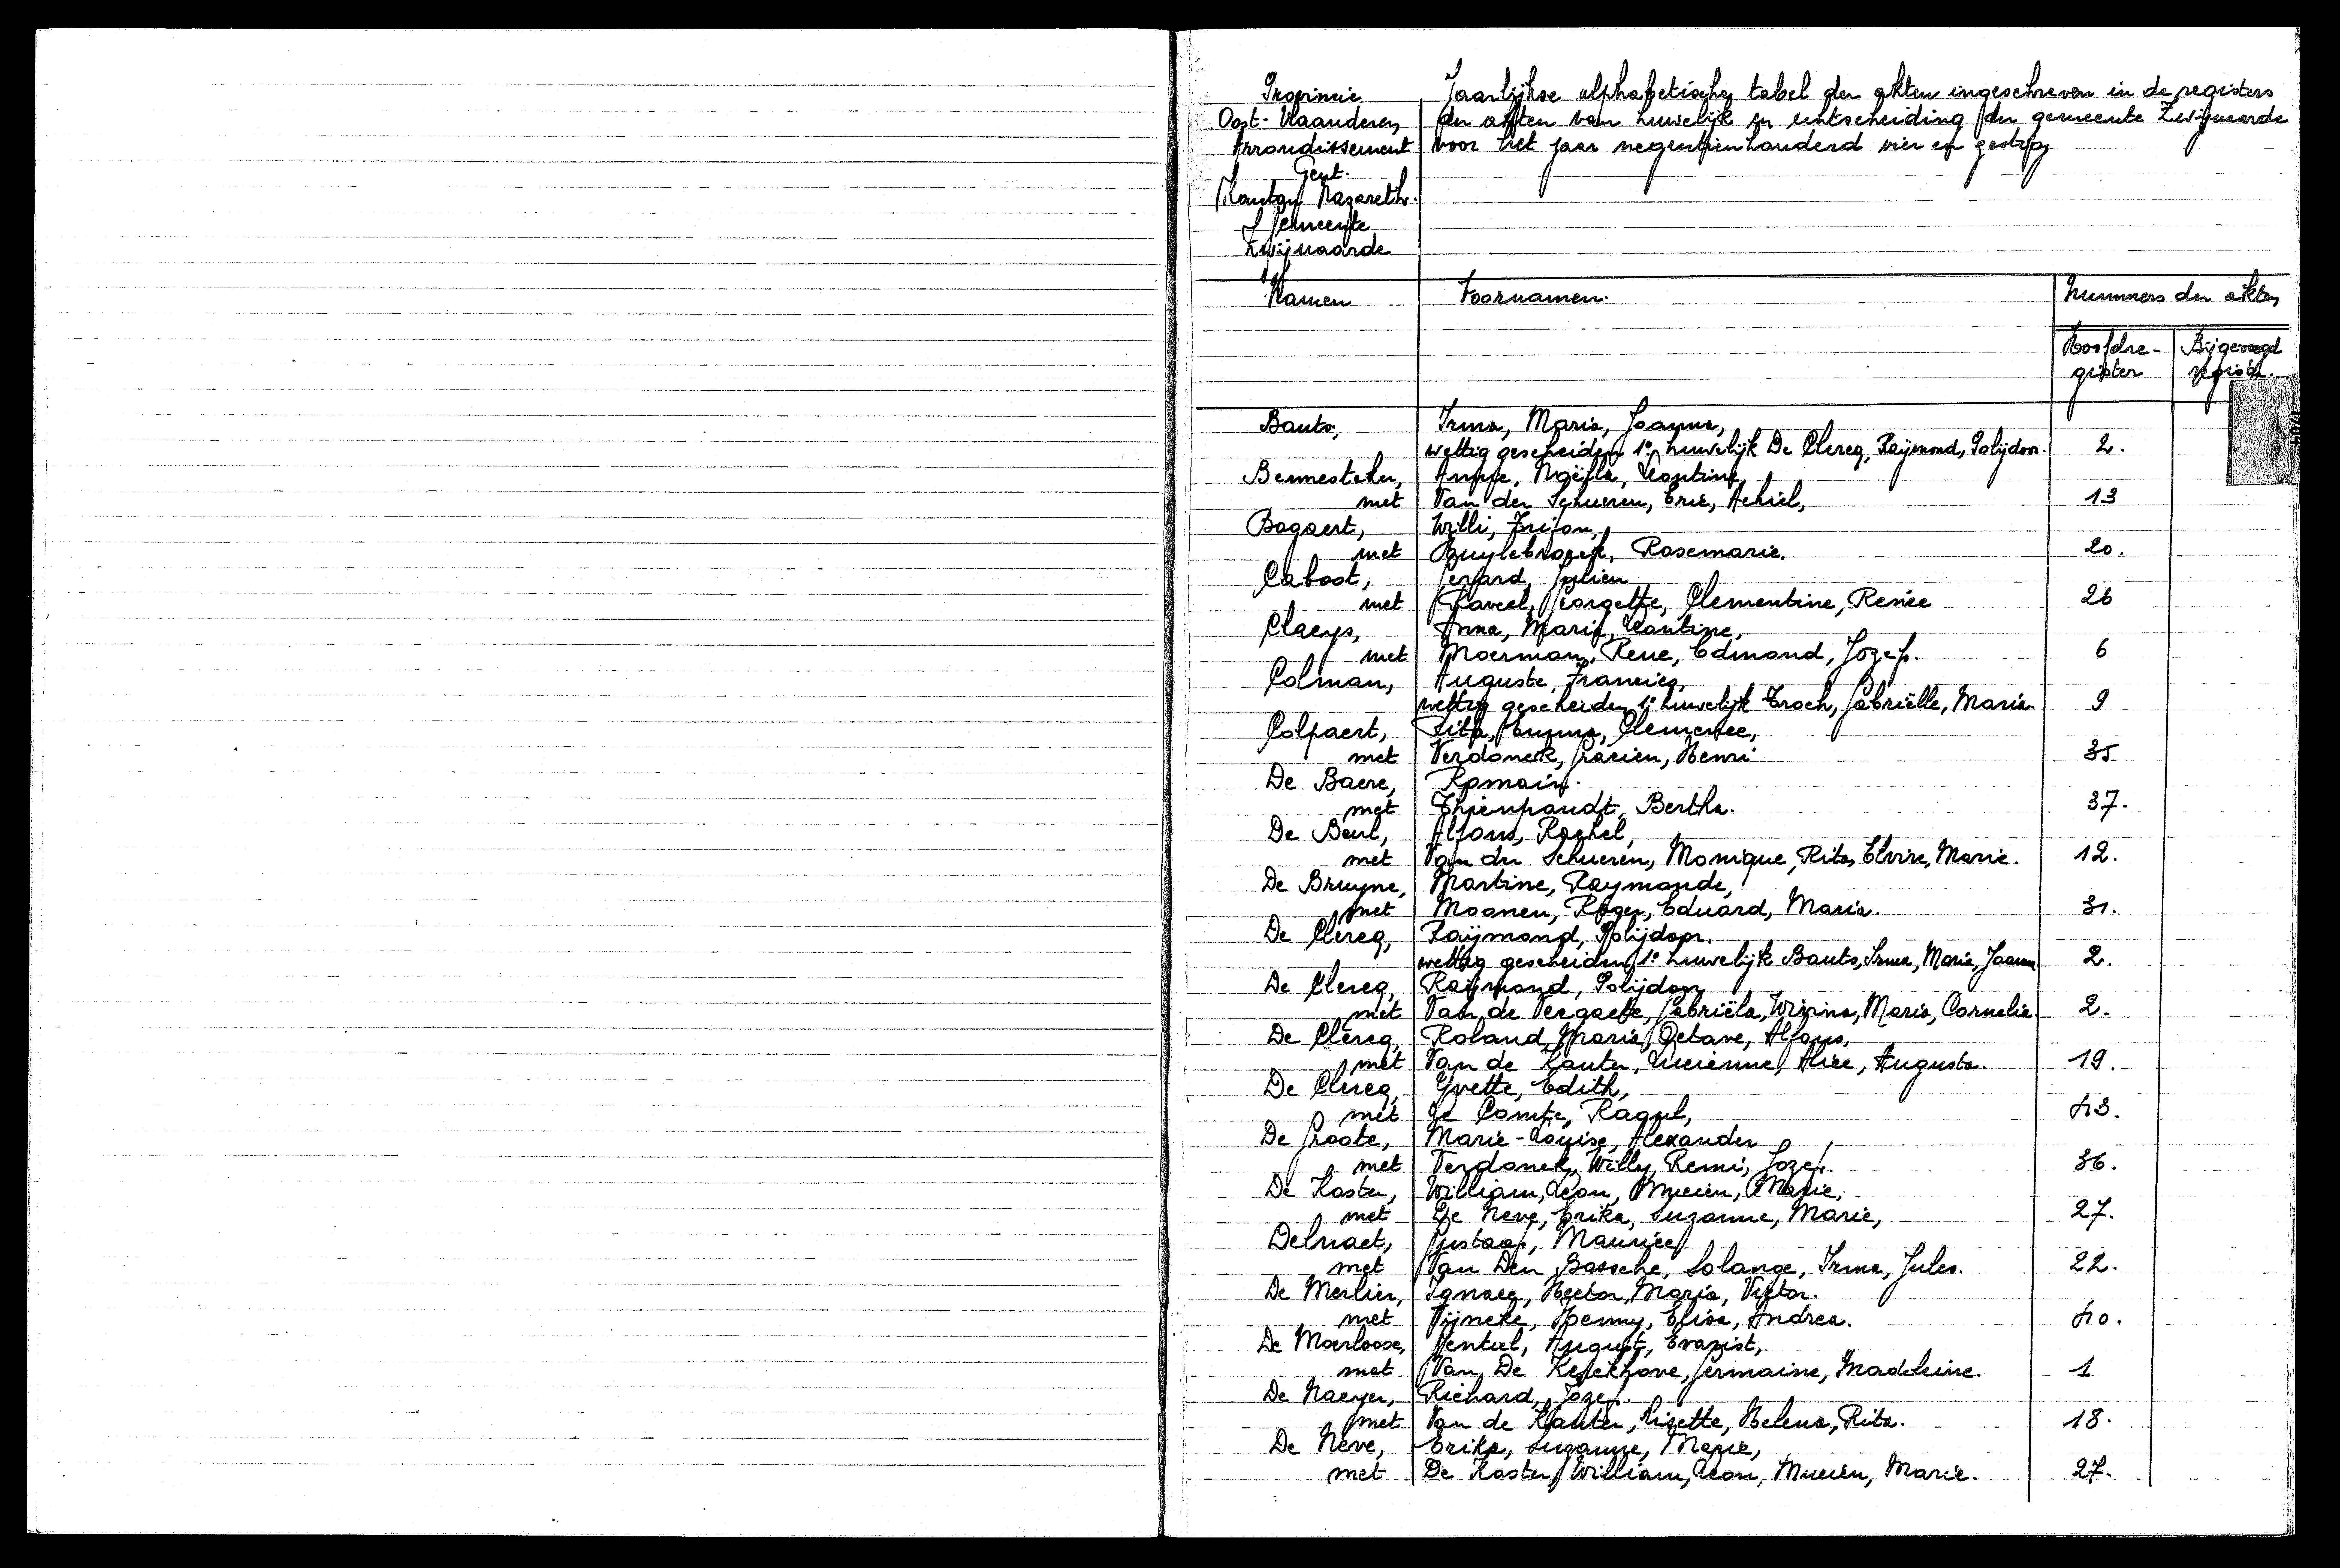 Provincie
Oost-Vlaanderen
Arrondissement
Gent.
Kanton Nazareth.
Gemeente
Zwijnaarde
Jaarlijkse alphabetische tabel der akten ingeschreven in de registers
der akten van huwelijk en echtscheiding der gemeente Zwijnaarde
voor het jaar negentienhonderd vier en zestig
Namen Voornamen. Nummers der akten
Hoofdre-
gister
Bijgevoegd
register.
Bauts, Irma, Maria, Joanna,
wettig gescheiden 1e huwelijk De Clercq, Raymond, Polijdoor. 2.
Bennesteker, Anne, Noëlla, Leontine,
met Van der Schueren, Eric, Achiel, 13
Bogaert, Willi,
met Buylebroeck, Rosemarie. 20.
Caboot, Gerard, Julien
met Gaveel, Georgette, Clementine, Renée 26
Claeys, Anna, Maria, Leontine,
met Moerman, Rene, Edmond, Jozef. 6
Colman, Auguste, Francies,
wettig gescheiden 1e huwelijk Troch, Gabriëlle, Maria. 9
Colpaert, Rita, Emma, Clemence,
met Verdonck, Gracien, Henri 35
De Baere, Romain.
met Thienpondt, Bertha. 37.
De Beul, Alfons, Rachel,
met Van der Schueren, Monique, Rita, Elvire, Marie. 12.
De Bruyne, Martine, Raymonde,
met Moonen, Roger, Eduard, Maria. 31.
De Clercq, Raymond, Polijdoor.
wettig gescheiden 1e huwelijk Bauts, Irma, Maria, Joanna 2.
De Clercq, Raymond, Polijdoor
met Van de Veegaete, Gabriëla, Maria, Cornelia. 2.
De Clercq, Roland, Maria, Octave, Alfons,
met Van de Kauter, Lucienne, Alice, Augusta. 19.
De Clercq, Yvette, Edith,
met De Comte, Raoul, 43.
De Groote, Marie-Louise, Alexander
met Verdonck, Willy, Remi, Jozef. 36.
De Koster, William, Leon, Marie,
met De Neve, Erika, Suzanne, Marie, 27.
Delmaet, Gustaaf, Maurice
met Van Den Bossche, Solange, Irma, Jules. 22.
De Merlier, Ignace, Hector, Maria, Victor.
met Vijncke, Henny, Elisa, Andrea. 40.
De Moerloose, August, Evarist,
met Van De Kerckhove, Germaine, Madeleine. 1
De Naeyer, Richard, Jozef.
met Van de Kauter, Lisette, Helena, Rita. 18.
De Neve, Erika, Suzanne, Marie,
met De Koster, William, Leon, Marie. 27.